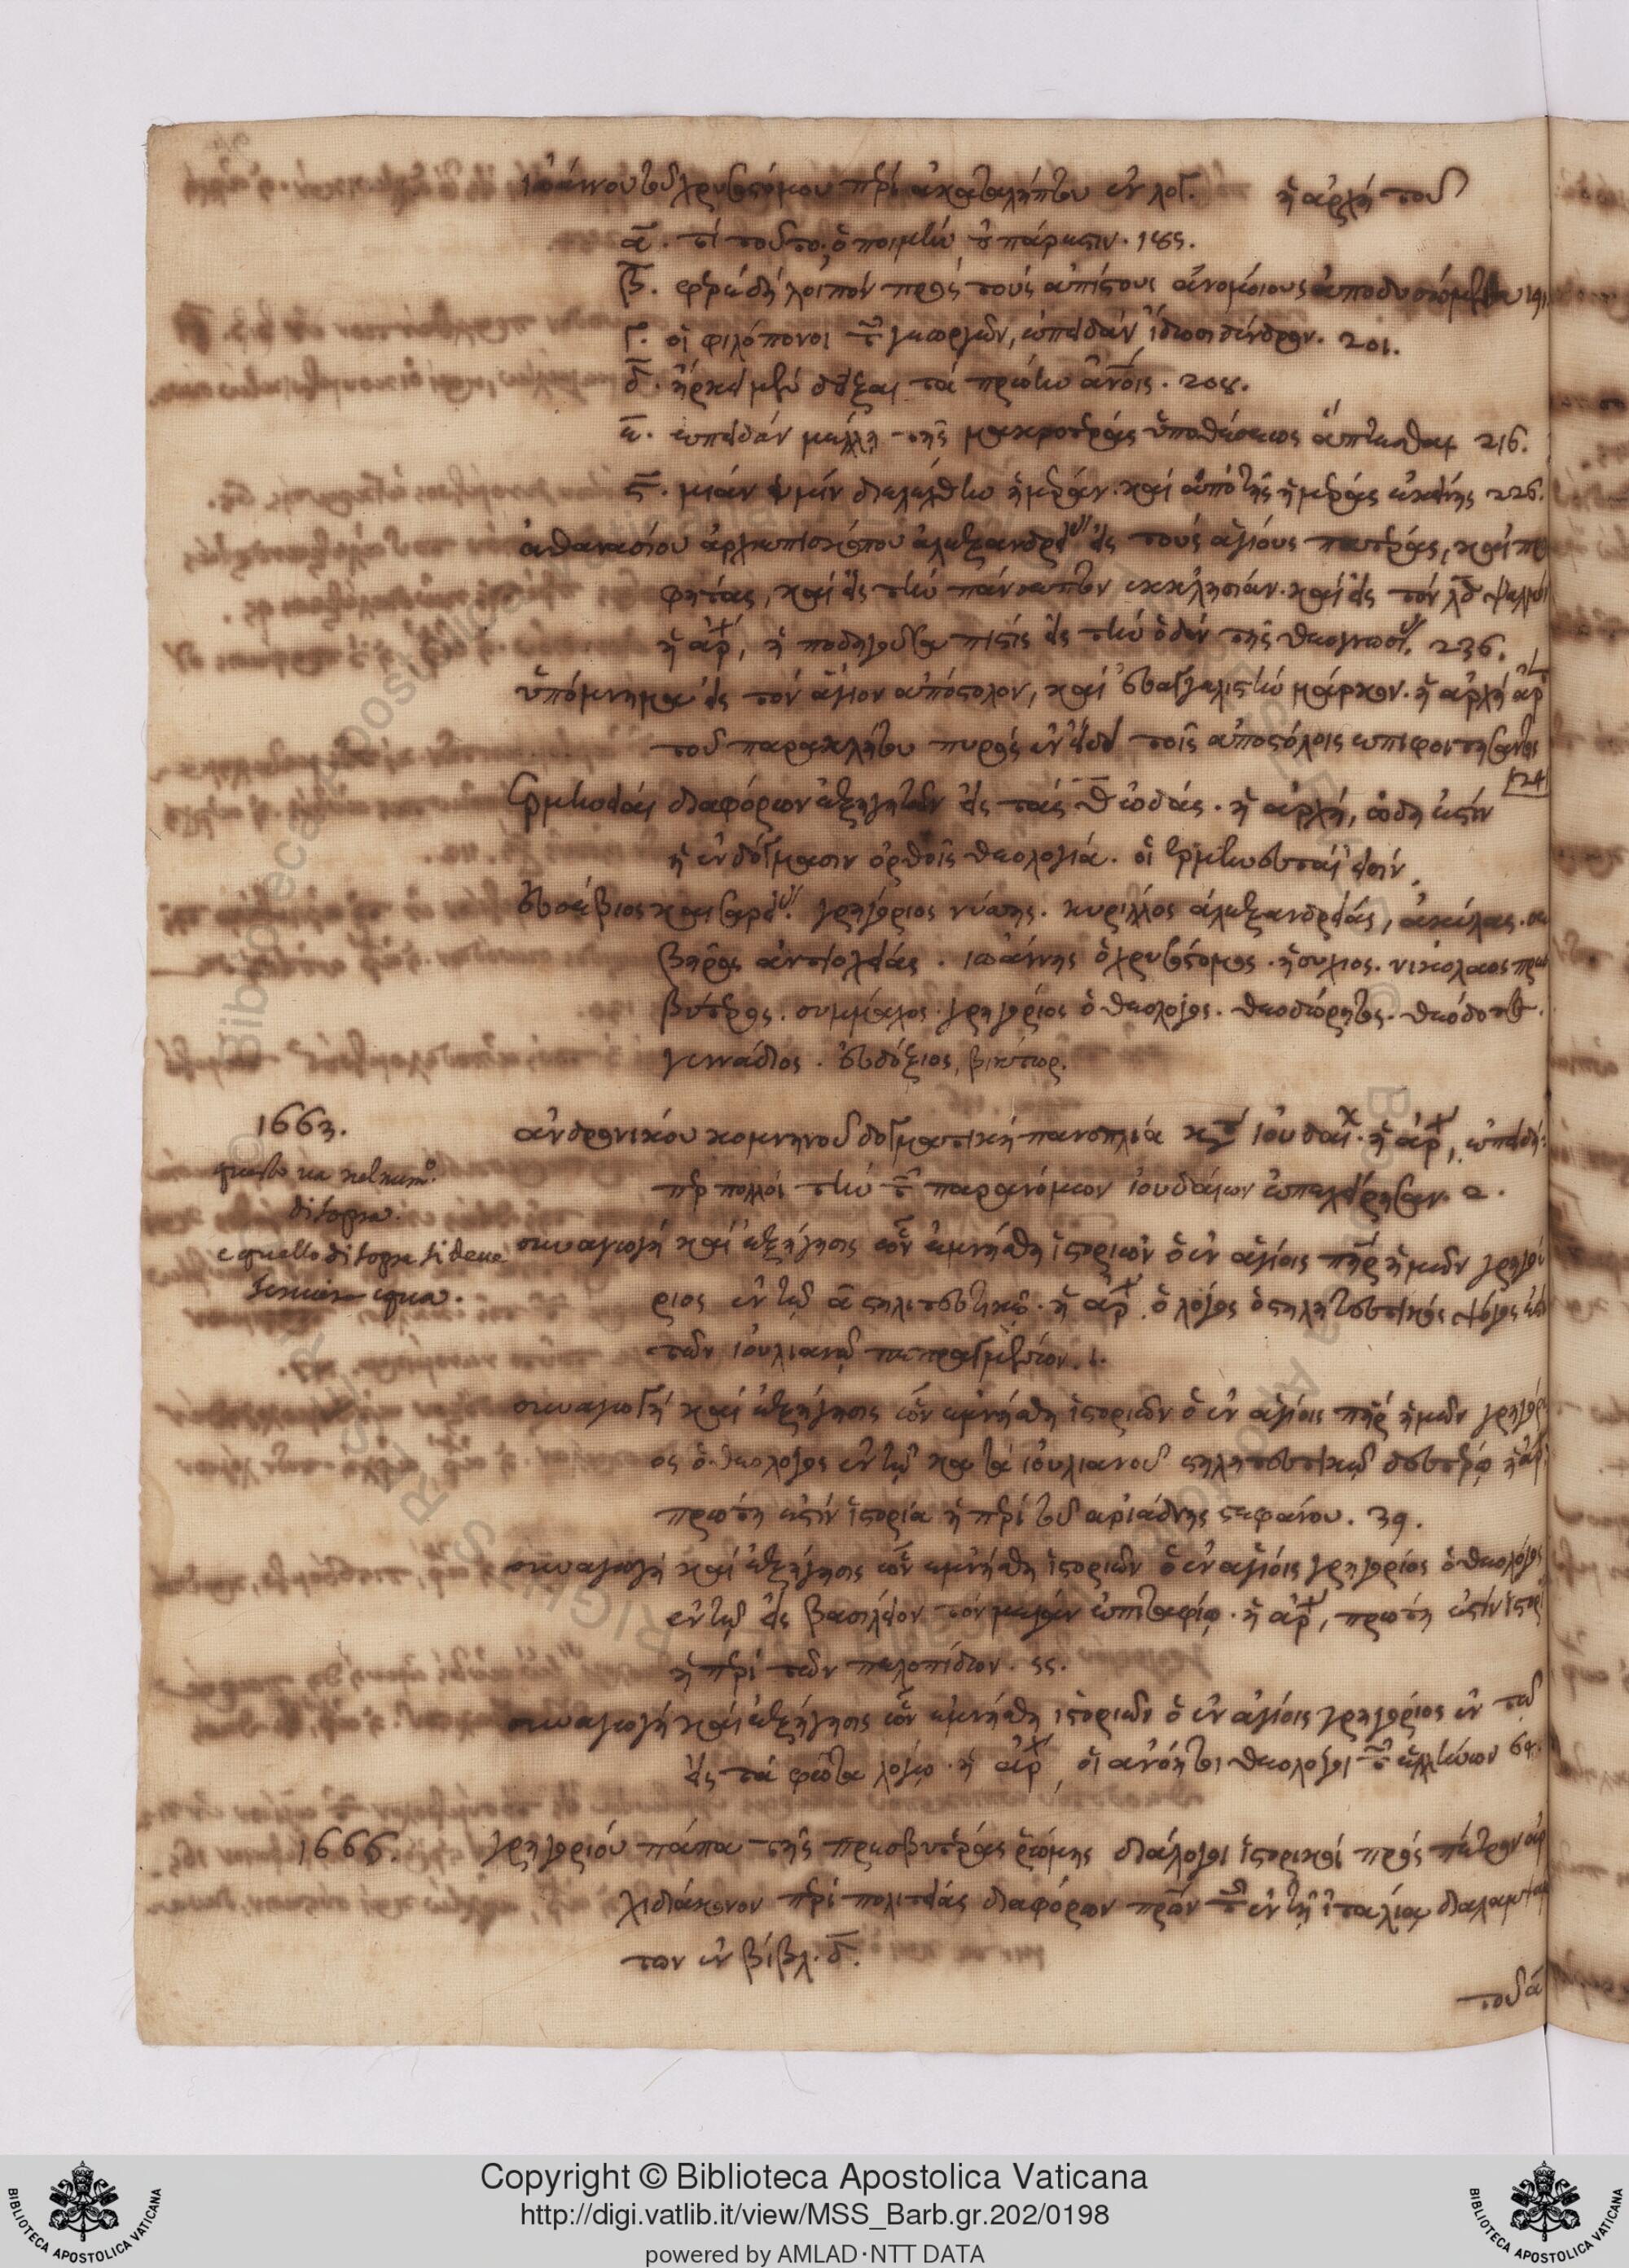 ἰωάννου τοῦ χρυσοστόμου περὶ ἀκαταλήπτου ἐν λογ. ἡ ἀρχὴ τοῦ
ᾱ. τί τοῦτο; ὁ ποιμὴν οὐ πάρεστιν. 185.
β̄. φέρε δὴ λοιπὸν πρὸς τοὺς ἀπίστους ἀνομοίους 191
γ̄. οἱ φιλόπονοι τῶν γεωργῶν, ἐπειδὰν ἴδωσι δένδρον. 201.
δ̄. ἤρκει μὲν δεῖξαι τὰ πρώτην 208.
ε̄. ἐπειδὰν μέλλῃ τῆς μακροτέρας ὑποθέσεως ἅπτεσθαι 216.
ς̄. μίαν ὑμῖν διελέχθην ἡμέραν. καὶ ἀπὸ τῆς ἡμέρας ἐκείνης 226.
ἀθανασίου ἀρχιεπισκόπου ἀλεξανδρεί εἰς τοὺς ἁγίους πατέρας, καὶ προ
φήτας, καὶ εἰς τὴν πάνσεπτον ἐκκλησίαν. καὶ εἰς τὸν λδ̄ ψαλμὸν
ἡ ἀρχ, ἡ ποδηγοῦσα πίστις εἰς τὴν ὁδὸν τῆς θεογνωσί. 236.
ὑπόμνημα εἰς τὸν ἅγιον ἀπόστολον, καὶ εὐαγγελιστὴν μάρκον. ἡ ἀρχὴ ἄρτι
τοῦ παρακλήτου πυρὸς ἐν εἴδει τοῖς ἀποστόλοις ἐπιφοιτήσαντος
124
ἑρμηνεῖαι διαφόρων ἐξηγητῶν εἰς τὰς θ̄ ᾠδάς. ἡ ἀρχή, ᾠδή ἐστιν
ἡ ἐν δόγμασιν ὀρθοῖς θεολογία. οἱ ἑρμηνευταί εἰσιν,
εὐσέβιος καισαρεί. γρηγόριος νύσσης. κύριλλος ἀλεξανδρείας, ἀκύλας. σε
βῆρος ἀντιοχείας. ἰωάννης ὁ χρυσόστομος. ἡσύχιος. νικόλαος πρεσ
βύτερος. σύμμαχος. γρηγόριος ὁ θεολόγος. θεοδώρητος. θεόδοτος.
γεννάδιος. εὐδόξιος, βίκτωρ.
1663. ἀνδρονίκου κομνηνοῦ δογματικὴ πανοπλία κατὰ ἰουδαι. ἡ ἀρχ, ἐπειδή
questo va nel num.o
di sopra.
περ πολλοὶ τὴν τῶν παρανόμων ἰουδαίων ἐπεχείρησαν. 2.
e quello di sopra si deve
συναγωγὴ καὶ ἐξήγησις ὧν ἐμνήσθη ἱστοριῶν ὁ ἐν ἁγίοις πατὴρ ἡμῶν γρηγό
ριος ἐν τῷ ᾱ στηλιτευτικῷ. ἡ ἀρχ. ὁ λόγος ὁ στηλιτευτικὸς ψόγος ἐστὶ
τῶν ἰουλιανῷ πεπραγμένων. 1.
συναγωγὴ καὶ ἐξήγησις ὧν ἐμνήσθη ἱστοριῶν ὁ ἐν ἁγίοις πατὴρ ἡμῶν γρηγόρι
ος ὁ θεολόγος ἐν τῷ κατὰ ἰουλιανοῦ στηλιτευτικῷ δευτέρῳ ἡ ἀρχ.
πρώτη ἐστὶν ἱστορία ἡ περὶ τοῦ ἀριάδνης στεφάνου. 39.
συναγωγὴ καὶ ἐξήγησις ὧν ἐμνήσθη ἱστοριῶν ὁ ἐν ἁγίοις γρηγόριος ὁ θεολόγος
ἐν τῷ εἰς βασίλειον τὸν μέγαν ἐπιταφίῳ. ἡ ἀρχ, πρώτη ἐστὶν ἱστορί
ἡ περὶ τῶν πελοπιδῶν. 55.
συναγωγὴ καὶ ἐξήγησις ὧν ἐμνήσθη ἱστοριῶν ὁ ἐν ἁγίοις γρηγόριος ἐν τῷ
εἰς τὰ φῶτα λόγῳ. ἡ ἀρχ, οἱ ἀνόητοι θεολόγοι τῶν ἑλλήνων 64.
1666. γρηγορίου πάπα τῆς πρεσβυτέρας ῥώμης διάλογοι ἱστορικοὶ πρὸς πέτρον ἀρ
χιδιάκονον περὶ πολιτείας διαφόρων πρων τῶν ἐν τῇ ἰταλίᾳ διαλαμψαν
των ἐν βίβλ. δ̄.
τοῦ ᾱ
Copyright © Biblioteca Apostolica Vaticana
http://digi.vatlib.it/view/MSS_Barb.gr.202/0198
powered by AMLAD·NTT DATA
BIBLIOTECA APOSTOLICA VATICANA
BIBLIOTECA APOSTOLICA VATICANA